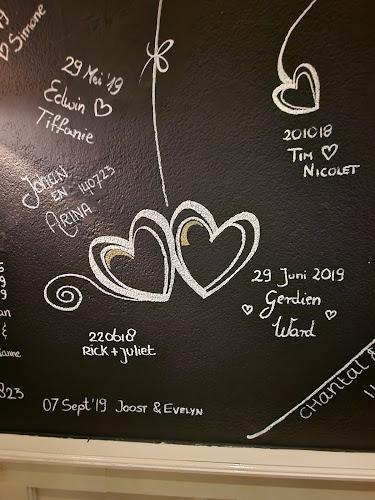 ♡ Simone
29 Mei '19
Edwin ♡
Tiffanie
201018
Tim ♡
Nicolet
EN 140723
ARINA
29 Juni 2019
Gerdien
♡ ♡
Ward
220618
Rick + Juliet
07 Sept '19 Joost & Evelyn
Chantal &